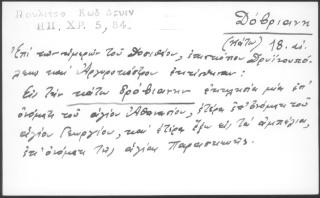 Πουλίτσα Κωδ. Δελβιν
ΗΠ. ΧΡ. 5, 84.
Δόβριανη
(Κάτω) 18. αἰ.
Ἐπί τῶν ἡμερῶν τοῦ Δοσιθέου, ἐπισκόπου Δρυϊνουπό-
λεως καί Ἀργυροκάστρου ἐκτίσθησαν:
Εἰς τήν κάτω δρόβιανην ἐκκλησία μία ἐπ'
ὀνόματι τοῦ ἁγίου Ἀθανασίου, ἑτέρα ἐπ' ὀνόματι τοῦ
ἁγίου Γεωργίου, καί ἑτέρα ἔξω εἰς τά ἀμπέλια,
ἐπ' ὀνόματι τῆς ἁγίας Παρασκευῆς.